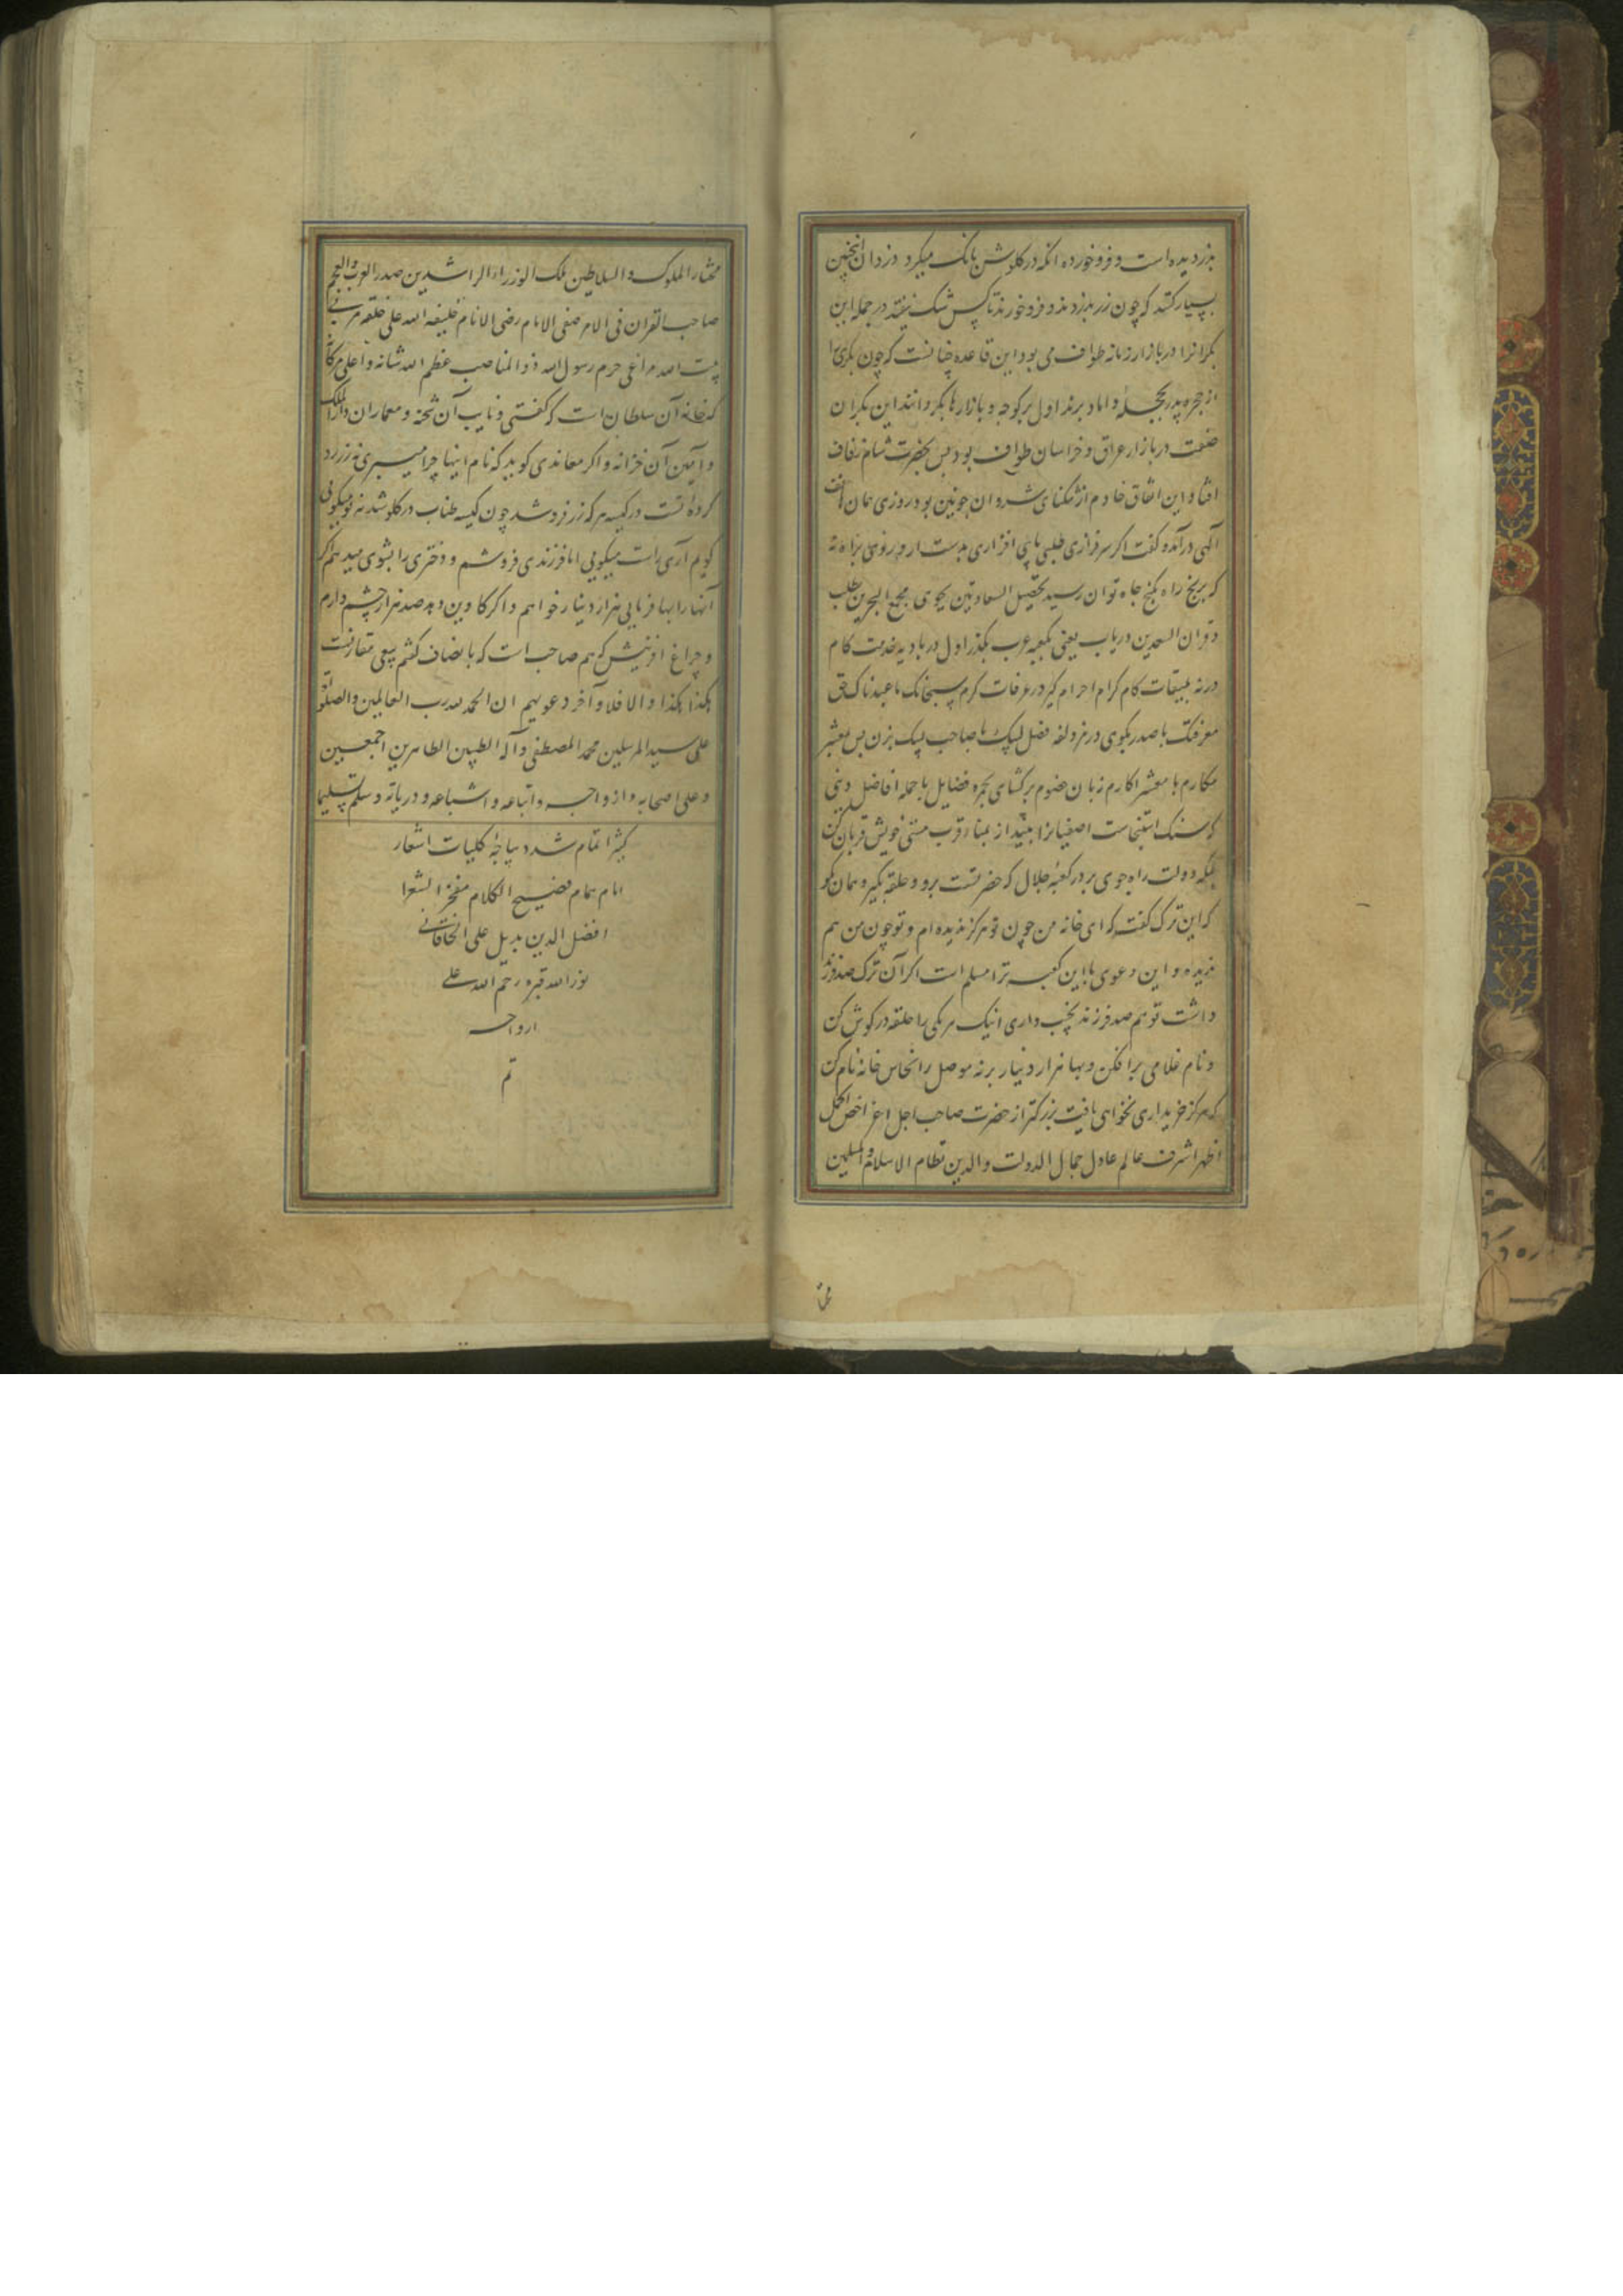 بزر دیده است و فرو خورده انکه در کلوش بانک میکرد دزدان انچنین
بسیار کنند که چون زر بدزدند و فرو خورند تا کس شک نیفتد در جمله این
بکرانرا در بازار زمانه طواف می بود این قاعده چنانست که چون بکری را
از حجره پدر بحجلهٔ داماد برند اول بر کوچه و بازارها بکردانند این بکران
در بازار عراق و خراسان طواف بود پس بحضرت شام زفاف
افتاد این اتفاق خادم از تنکنای شروان چونین بود روزی همان
آکهی درآمده کفت اکر سرفرازی طلبی پای افزاری بدست ار و روی براه نه
که برنج راه بکنج جاه توان رسید تحصیل السعادتین بجوی مجمع البحرین طلب
و قران السعدین دریاب یعنی بکعبه عرب بکذر اول در بادیه خدمت کام
در نه بمیقات کام کرام احرام کیر در عرفات کرم سبحانک ما عبدناک حق
معرفتک با صدر بکوی در مزدلفه فضل لبیک با صاحب لبیک بزن پس بمشعر
مکارم با معشر اکارم زبان برکشای بجمره فضایل با جمله افاضل
که سنک استنجاست اصفیا بینداز بمناء قرب منی خویش قربان کن
بمکه دولت راه جوی بر در کعبهٔ جلال که حضرتست برو و حلقه بکیر و همان کو
که این ترک کفت که ای خانه من چون تو هرکز ندیده ام و تو چون من هم
ندیده و این دعوی با این کعبه ترا مسلم است اکر آن ترک صد فرزند
داشت تو هم صد فرزند نجیب داری اینک هر یکی را حلقه در کوش کن
و نام غلامی برافکن و بها هزار دینار برنه موصل را نخاس خانه نام کن
که هرکز خریداری نخواهی یافت بزرکتر از حضرت صاحب اجل اعز اخص اکمل
اظهر اشرف عالم عادل جمال الدولت والدین نظام الاسلام والمسلمین
مختار الملوک والسلاطین ملک الوزراء الراشدین صدر العرب والعجم
صاحب القران فی الامر صفی الامام رضی الانام خلیفة الله علی خلقه مربی
بیت الله مراعی حرم رسول الله ذو المناصب عظم الله شانه واعلی مکانه
که خانه آن سلطان است که کفتی و نایب آن شحنه و معماران دارالملک
و امین آن خزانه و اکر معاندی کوید که نام اینها چرا میبری نه زر زرد
کرده اتست در کیسه هر که زر فروشد چون کیسه طناب در کلو شد نه تو میکویی
کویم آری راست میکویی اما فرزندی فروشم و دختری را بشوی میدهم اکر
آنها را بها فرمایی هزار دینار خواهم و اکر کاوین دهد صد هزار چشم دارم
و چراغ افرینش کرم صاحب است که با نصاف کشم
هکذا هکذا والا فلا وآخر دعویهم ان الحمد لله رب العالمین والصلوة
علی سید المرسلین محمد المصطفی وآله الطیبین الطاهرین اجمعین
وعلی اصحابه وازواجه واتباعه واشیاعه وذریاته وسلم تسلیما
کثیرا تمام شد دیباچهٔ کلیات اشعار
امام همام فصیح الکلام مفخر الشعرا
افضل الدین بدیل علی الخاقانی
نور الله قبره رحم الله علی
ارواحه
تم